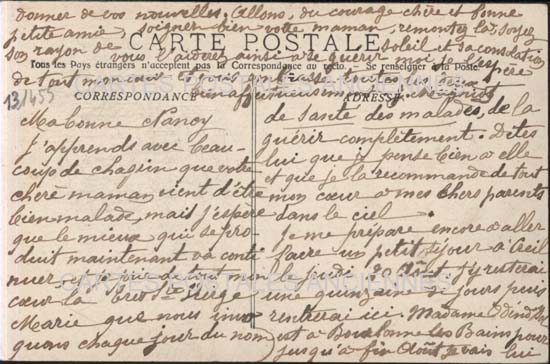 donner de vos nouvelles. Allons, du courage chère et bonne
petite amie, soigner bien votre maman, remontez la soyez
son rayon de soleil et sa consolation
CARTE POSTALE
vous l'aiderez ainsi à se guérir
Tous les Pays étrangers n'acceptent pas la Correspondance au recto. — Se renseigner à la Poste.
de tout mon cœur
13/455
bien affectueusement
CORRESPONDANCE
ADRESSE
Ma bonne Nancy
J'apprends avec beau-
coup de chagrin que votre
chère maman vient d'être
bien malade, mais j'espère
que le mieux qui se pro
duit maintenant va conti
nuer et je prie de tout mon
cœur la Très Ste Vierge
Marie que nous invo
quons chaque jour du nom
de Santé des malades, de la
guérir complètement. Dites
lui que je pense bien à elle
et que je la recommande de tout
mon cœur à mes chers parents
dans le ciel.
Je me prépare encore à aller
faire un petit séjour à
le jeudi 20 Août. J'y resterai
une quinzaine de jours puis
resterai ici. Madame
est à Bourbonne les Bains pour
jusqu'à fin Août. Je vais lui
CARTES POSTALES ANCIENNES